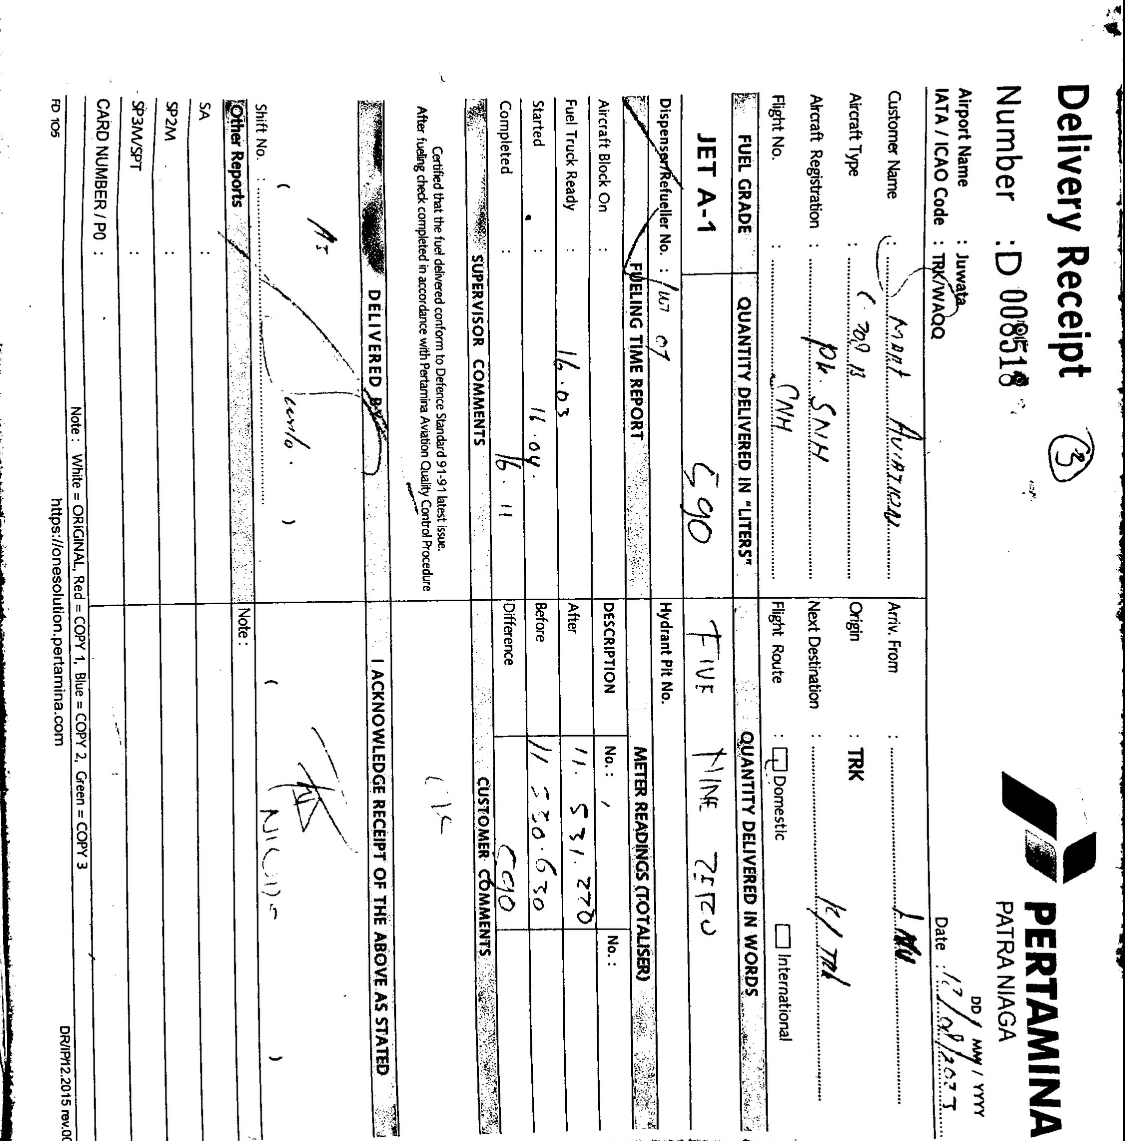 Delivery Receipt 3
Number : D 008518
PERTAMINA
PATRA NIAGA
DD / MM / YYYY
Airport Name : Juwata
IATA / ICAO Code : TRK/WAQQ
Date :
Customer Name : AVIATION
Arriv. From :
Aircraft Type : C 208 B
Origin : TRK
Aircraft Registration : PK. SNH
Next Destination :
Flight No. : CNH
Flight Route : Domestic International
FUEL GRADE QUANTITY DELIVERED IN "LITERS" QUANTITY DELIVERED IN WORDS
JET A-1 590 FIVE NINE ZERO
Dispenser/Refueller No. : 07
Hydrant Pit No.
FUELING TIME REPORT METER READINGS (TOTALISER)
Aircraft Block On :
DESCRIPTION No. : No. :
Fuel Truck Ready : 16.03
After 11.531.220
Started : 16.04.
Before 11.530.630
Completed : 16.11
Difference 590
SUPERVISOR COMMENTS CUSTOMER COMMENTS
Certified that the fuel delivered conform to Defence Standard 91-91 latest issue.
After fueling check completed in accordance with Pertamina Aviation Quality Control Procedure
DELIVERED BY I ACKNOWLEDGE RECEIPT OF THE ABOVE AS STATED
Shift No. :
Other Reports Note :
SA :
SP2M :
SP3M/SPT :
CARD NUMBER / PO :
Note : White = ORIGINAL, Red = COPY 1, Blue = COPY 2, Green = COPY 3
FD 105 https://onesolution.pertamina.com DR/IP/12.2015 rev.00